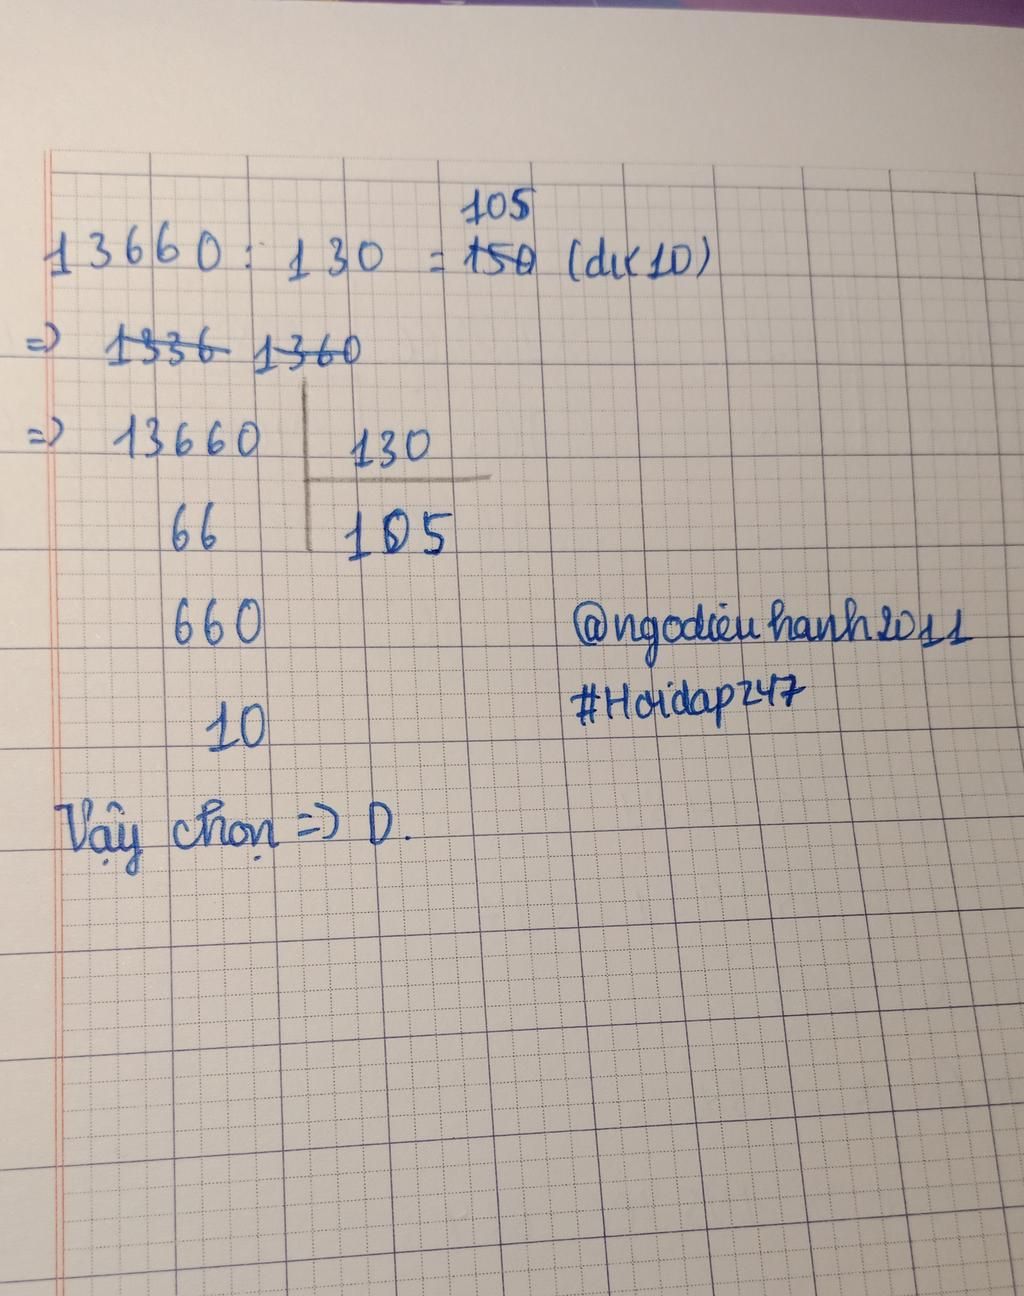 105
13660 : 130 = 150 (dư 10)
=> 1336 1360
=> 13660 130
66 105
660
10
@ngodiệuhanh2011
#Hoidap247
Vậy chọn => D.